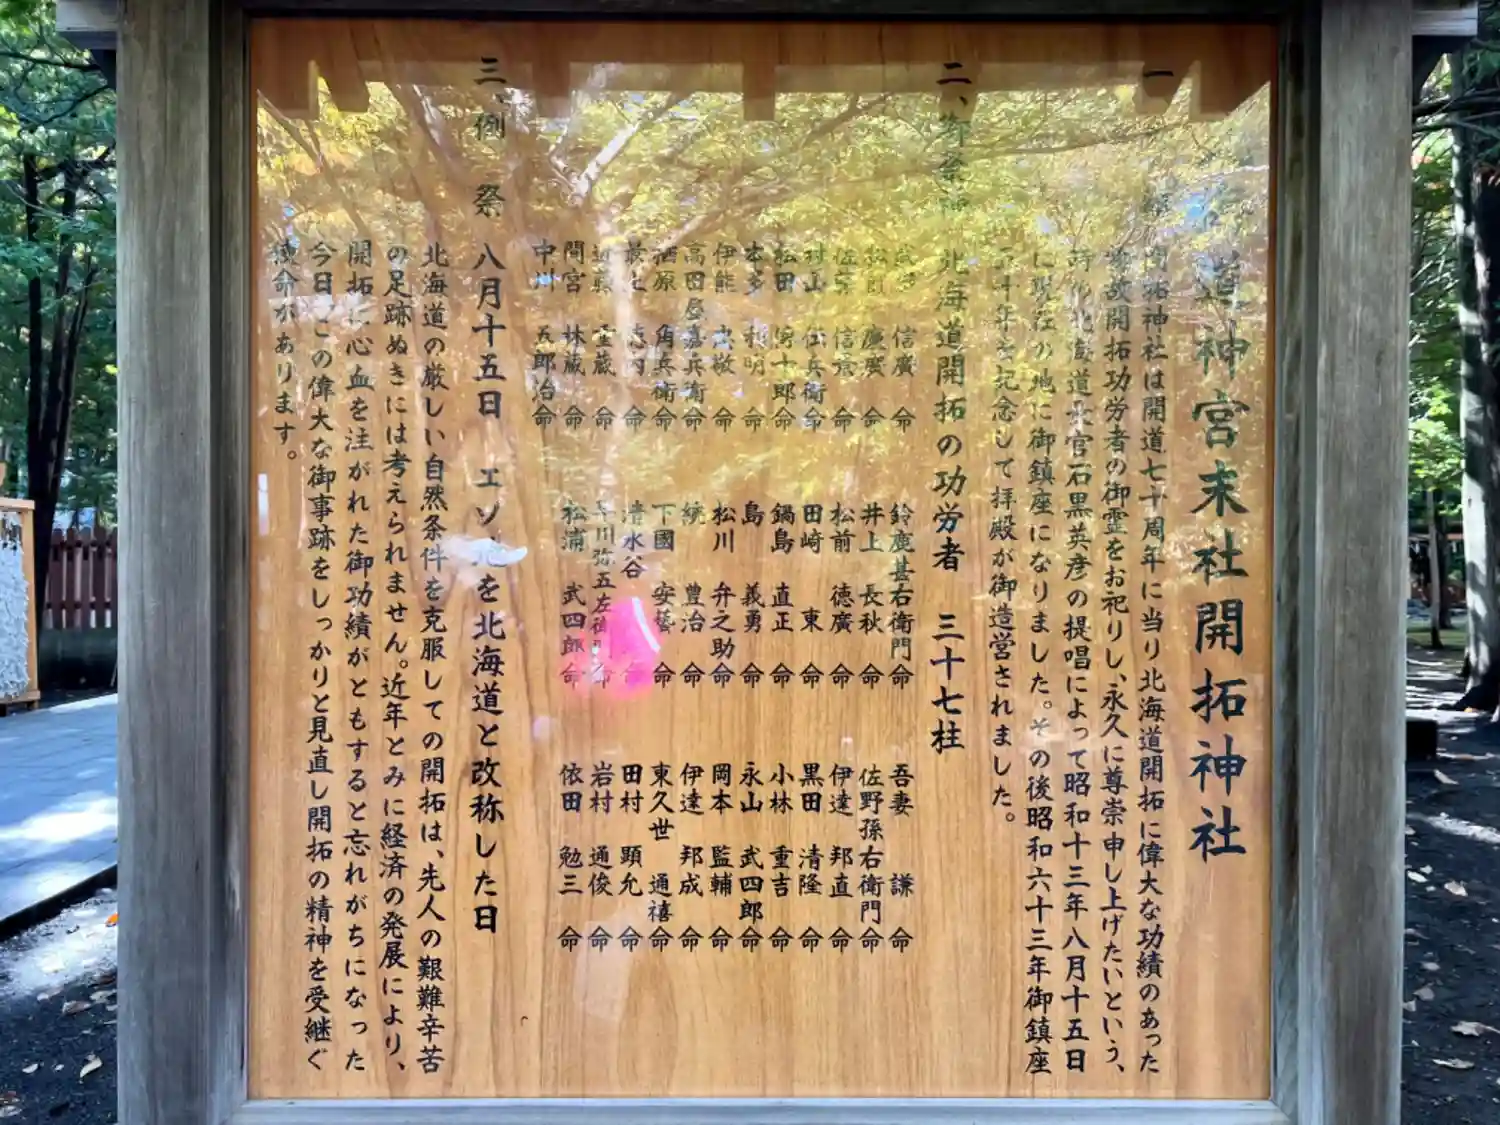 道神宮末社開拓神社
一、
開拓神社は開道七十周年に当り北海道開拓に偉大な功績のあった
物故開拓功労者の御霊をお祀りし、永久に尊崇申し上げたいという、
時の北海道長官石黒英彦の提唱によって昭和十三年八月十五日
に現在の地に御鎮座になりました。その後昭和六十三年御鎮座
五十年を記念して拝殿が御造営されました。
二、御祭神 北海道開拓の功労者 三十七柱
武田 信廣 命
松前 慶廣 命
佐藤 信景 命
村山 伝兵衛 命
松田 傳十郎 命
本多 利明 命
伊能 忠敬 命
高田屋嘉兵衛 命
栖原 角兵衛 命
最上 徳内 命
近藤 重蔵 命
間宮 林蔵 命
中川 五郎治 命
鈴鹿甚右衛門 命
井上 長秋 命
松前 徳廣 命
田崎 東 命
鍋島 直正 命
島 義勇 命
松川 弁之助 命
続 豊治 命
下國 安藝 命
清水谷 命
早川弥五左衛門 命
松浦 武四郎 命
吾妻 謙 命
佐野孫右衛門 命
伊達 邦直 命
黒田 清隆 命
小林 重吉 命
永山 武四郎 命
岡本 監輔 命
伊達 邦成 命
東久世 通禧 命
田村 顕允 命
岩村 通俊 命
依田 勉三 命
三、例 祭 八月十五日 エゾ地を北海道と改称した日
北海道の厳しい自然条件を克服しての開拓は、先人の艱難辛苦
の足跡ぬきには考えられません。近年とみに経済の発展により、
開拓に心血を注がれた御功績がともすると忘れがちになった
今日、この偉大な御事跡をしっかりと見直し開拓の精神を受継ぐ
使命があります。